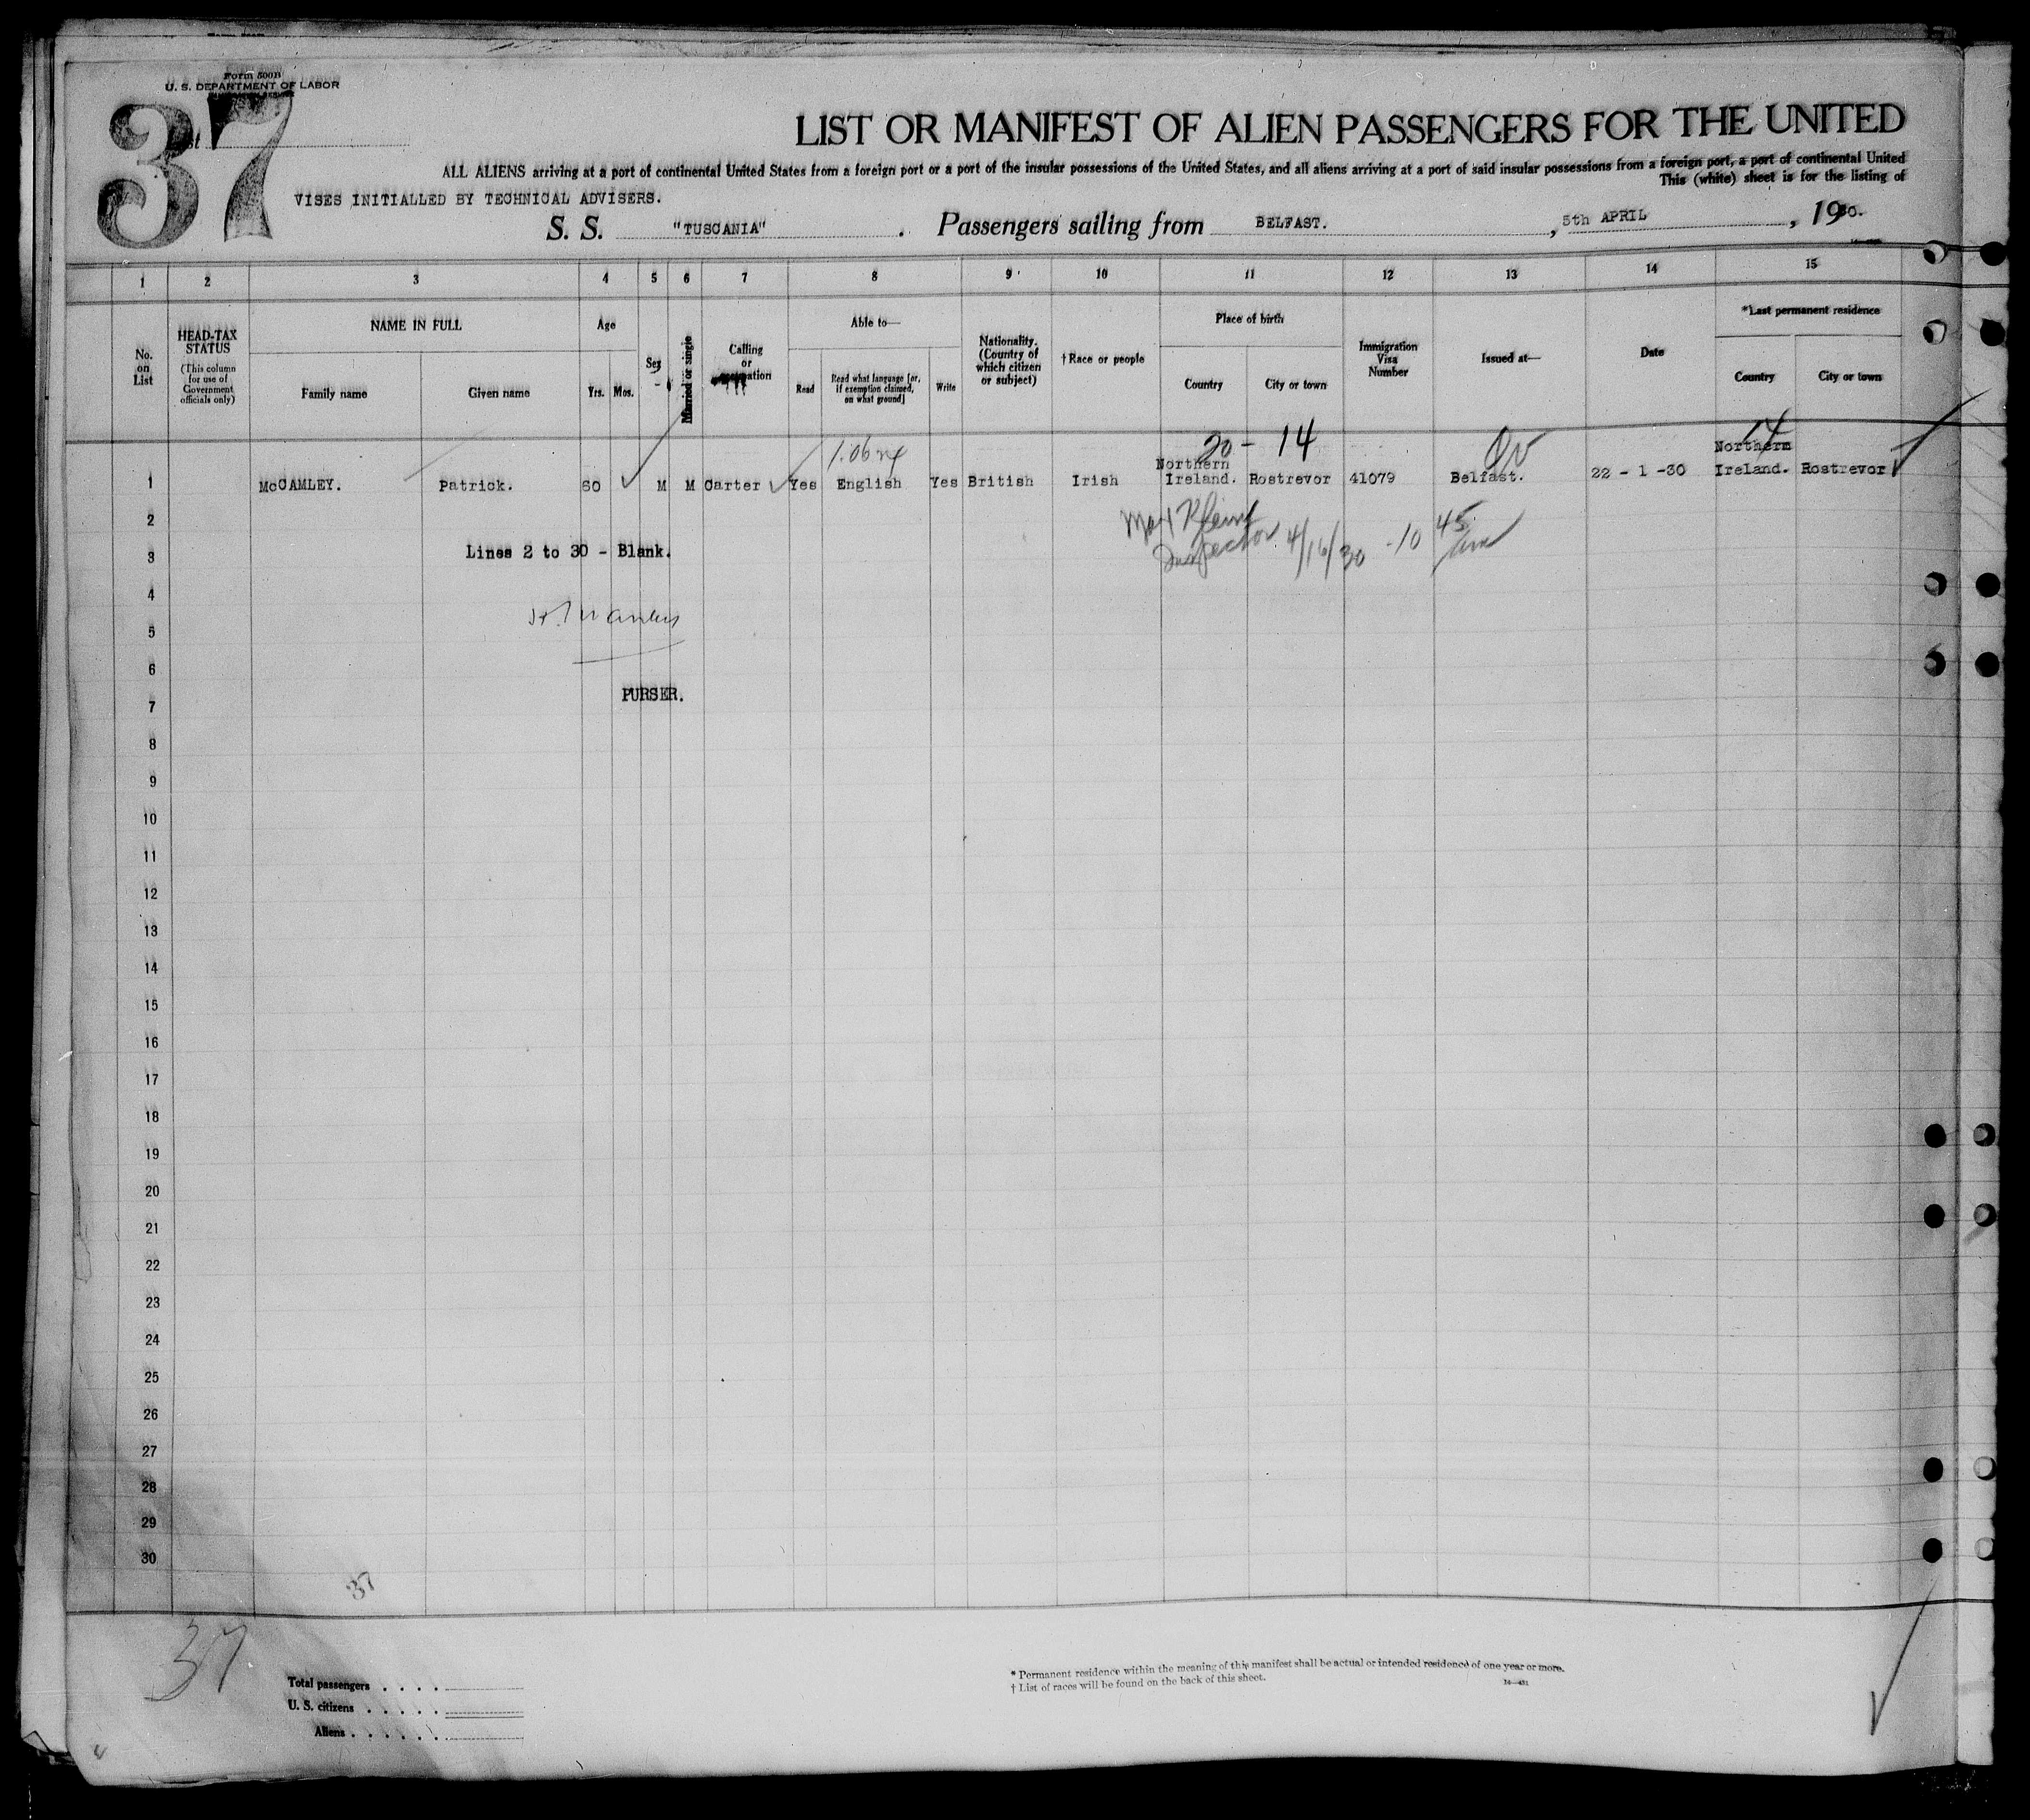 Form 500B
U. S. DEPARTMENT OF LABOR
37
LIST OR MANIFEST OF ALIEN PASSENGERS FOR THE UNITED
ALL ALIENS arriving at a port of continental United States from a foreign port or a port of the insular possessions of the United States, and all aliens arriving at a port of said insular possessions from a foreign port, a port of continental United
This (white) sheet is for the listing of
VISES INITIALLED BY TECHNICAL ADVISERS.
S. S. "TUSCANIA". Passengers sailing from BELFAST. , 5th APRIL , 1930.
1 2 3 4 5 6 7 8 9 10 11 12 13 14 15
No. on List
HEAD-TAX STATUS
(This column for use of Government officials only)
NAME IN FULL
Family name Given name
Age
Yrs. Mos.
Sex
Married or single
Calling or
Able to—
Read
Read what language [or, if exemption claimed, on what ground]
Write
Nationality. (Country of which citizen or subject)
†Race or people
Place of birth
Country City or town
Immigration Visa Number
Issued at—
Date
*Last permanent residence
Country City or town
20 - 14 14
1 McCAMLEY. Patrick. 60 M M Carter Yes English Yes British Irish Northern Ireland. Rostrevor 41079 Belfast. 22 - 1 -30 Northern Ireland. Rostrevor
2
Inspector 4/16/30 - 10 45 am
3 Lines 2 to 30 - Blank.
4
5
6
PURSER.
7
8
9
10
11
12
13
14
15
16
17
18
19
20
21
22
23
24
25
26
27
28
29
30
37
37
Total passengers
U. S. citizens
Aliens
* Permanent residence within the meaning of this manifest shall be actual or intended residence of one year or more.
† List of races will be found on the back of this sheet.